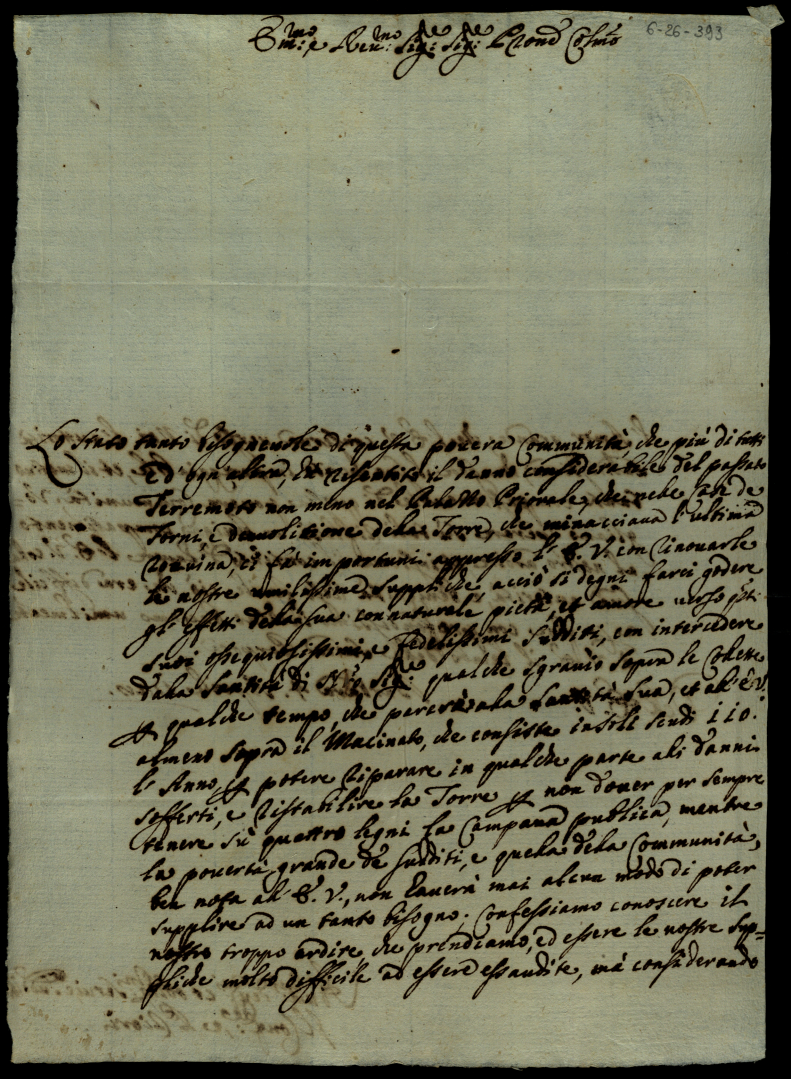 Em.mo e Reu.mo Sig.re Sig.re Prone Col.mo
6-26-393
Lo stato tanto bisogneuole di questa pouera Communità, che più di tutti
ed' ogn' altra, hà risentito il danno considerabile del passato
Terremoto non meno nel Palazzo Priorale, che nele Case de
Forni, e demolitione dela Torre, che minacciaua l' ultima
rouina, ci fà importuni appresso l' E. V. con rinouarle
le nostre umilissime suppliche, acciò si degni farci godere
gl' effetti dela sua connaturale pietà, et amore verso q.sti
suoi ossequiosissimi, e fedelissimi sudditi, con intercedere
dala Santità di N.ro Sig.re qualche sgrauio sopra le Collette
p qualche tempo, che parerà ala Santità Sua, et al' E. V.
almeno sopra il Macinato, che consiste in soli scudi 110.
l' Anno, p potere riparare in qualche parte ali danni
sofferti, e ristabilire la Torre p non douer per sempre
tenere sù quattro legni la Campana publica, mentre
la pouertà grande de sudditi, e quela dela Communità,
ben nota al' E. V., non hauerà mai alcun modo di poter
supplire ad un tanto bisogno. Confessiamo conoscere il
nostro troppo ardire, che prendiamo, ed essere le nostre sup=
pliche molto difficile ad essere essaudite, mà considerando